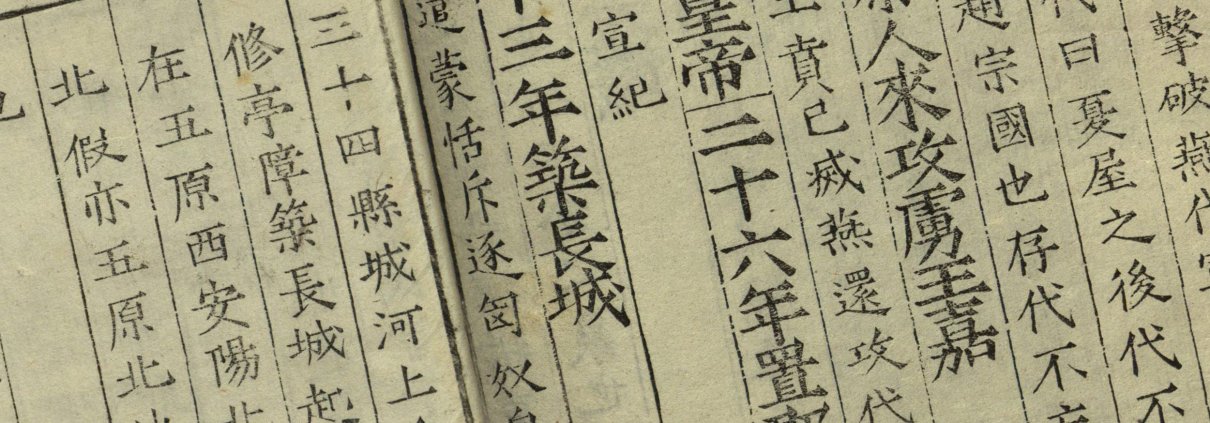 擊破燕代
代曰憂屋之後代不
趙宗國也存代不
人來攻虜王嘉
王賁已滅燕還攻代
皇帝二十六年置
宣紀
十三年築長城
遣蒙恬斥逐匈奴自
三十四縣城河上
修亭障築長城起
在五原西安陽北
北假亦五原北
也